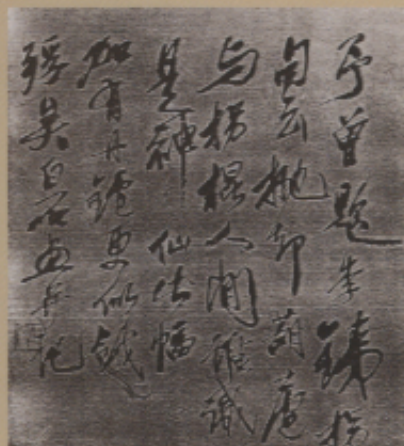 予曾題李鐵拐
句云抛却葫蘆
与拐棍人间誰識
是神仙此幅
加有丹鑪更似戲
弄吴白石畫并記